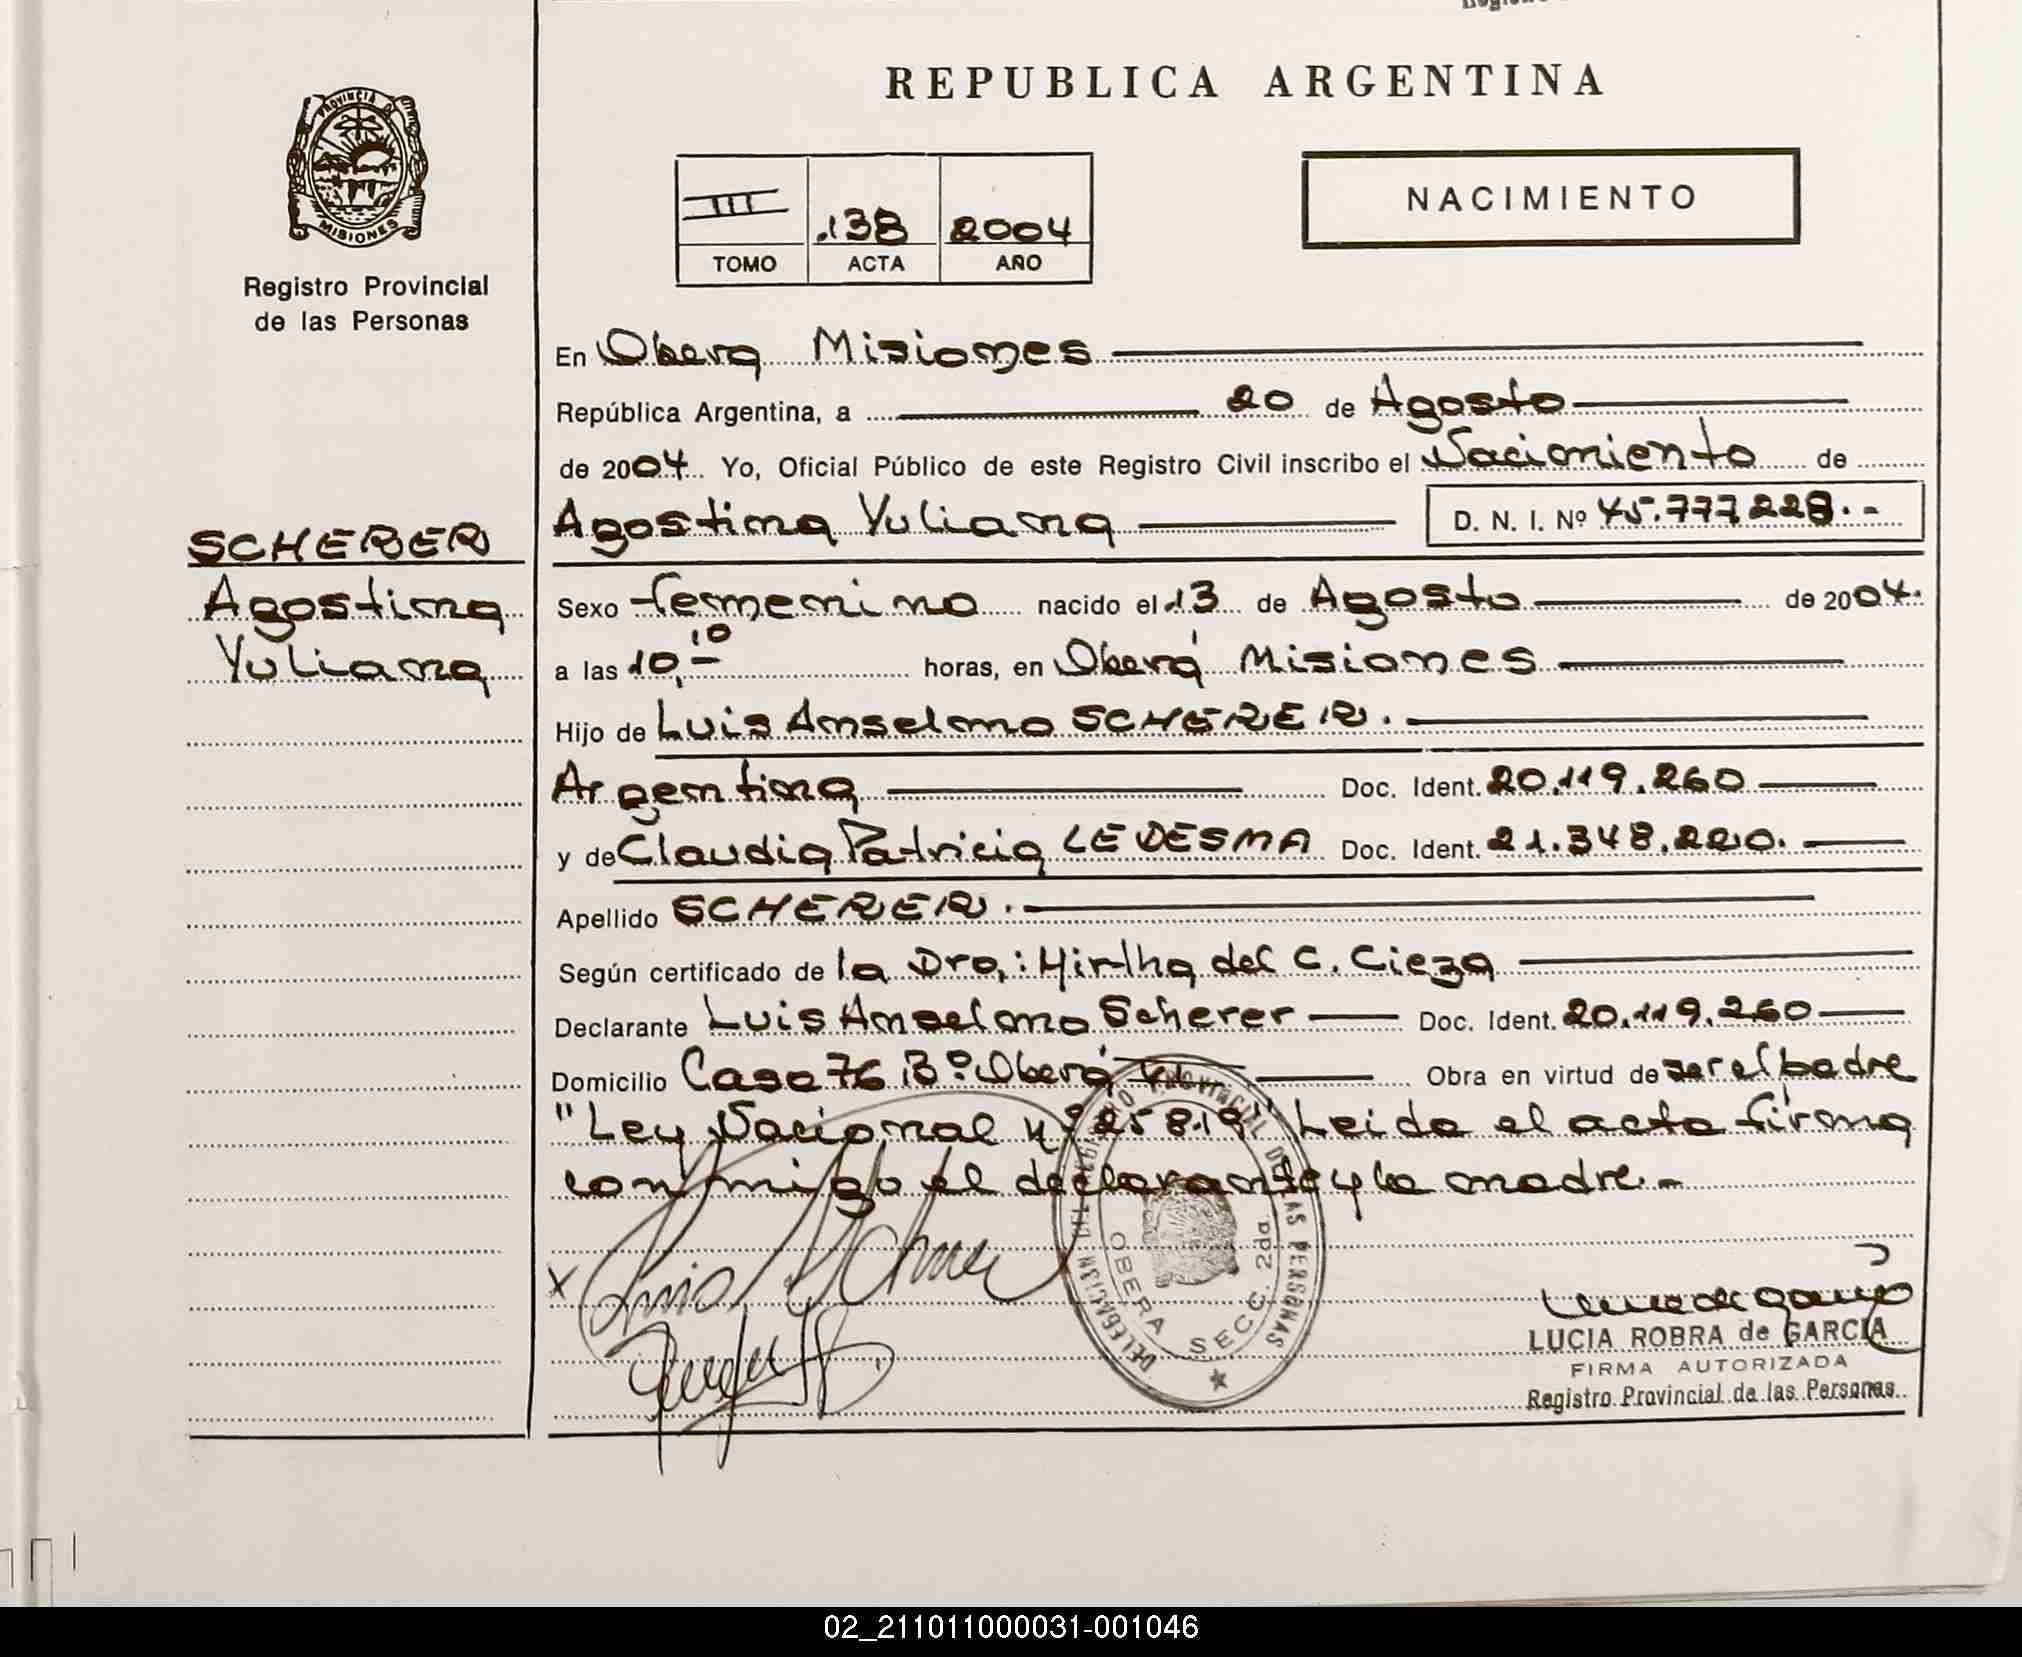 REPUBLICA ARGENTINA
PROVINCIA DE
MISIONES
Registro Provincial
de las Personas
III .138 2004
TOMO ACTA AÑO
NACIMIENTO
En Obera Misiones
República Argentina, a 20 de Agosto
de 2004 Yo, Oficial Público de este Registro Civil inscribo el Nacimiento de
Agostina Yuliana D. N. I. Nº 45.777.228.-
SCHERER
Agostina
Yuliana
Sexo femenino nacido el 13 de Agosto de 2004.
a las 10,10 horas, en Oberá Misiones
Hijo de Luis Anselmo SCHERER.
Argentina Doc. Ident. 20.119.260
y de Claudia Patricia LEDESMA Doc. Ident. 21.348.220.
Apellido SCHERER.
Según certificado de la Dra,: Mirtha del C. Cieza
Declarante Luis Anselmo Scherer Doc. Ident. 20.119.260
Domicilio Casa 76 Bº Oberá Obra en virtud de ser el padre
"Ley Nacional Nº 25819" Leida el acta firma
conmigo el declarante y la madre.-
DELEGACION DEL REGISTRO PROVINCIAL DE LAS PERSONAS
OBERA SECC. 2da.
X Luis Scherer
LUCIA ROBRA de GARCIA
FIRMA AUTORIZADA
Registro Provincial de las Personas
02_211011000031-001046